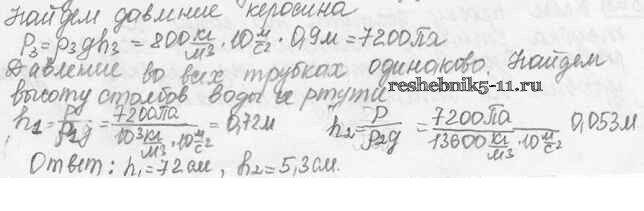 Найдем давление керосина
P₃ = ρ₃gh₃ = 800 кг/м³ · 10 м/с² · 0,9м = 7200Па
Давление во всех трубках одинаково. Найдем
reshebnik5-11.ru
высоту столбов воды и ртути
h₁ = P/ρ₁g = 7200Па/10³ кг/м³ · 10 м/с² = 0,72м h₂ = P/ρ₂g = 7200Па/13600 кг/м³ · 10 м/с² 0,053м
Ответ: h₁ = 72см, h₂ = 5,3см.